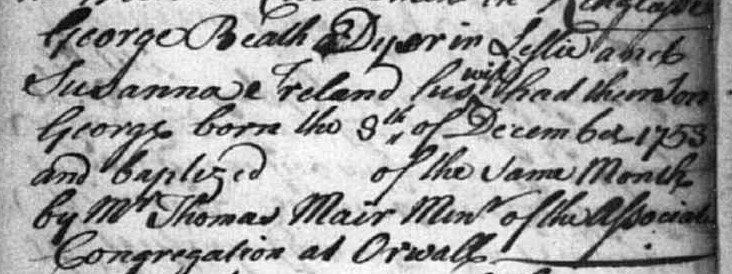 in Kinglassie
George Beath a Dyer in Leslie and
Susanna Ireland his wife had their son
George born the 8th of December 1753
and baptized of the same Month
by Mr Thomas Mair Minr of the Associate
Congregation at Orwall